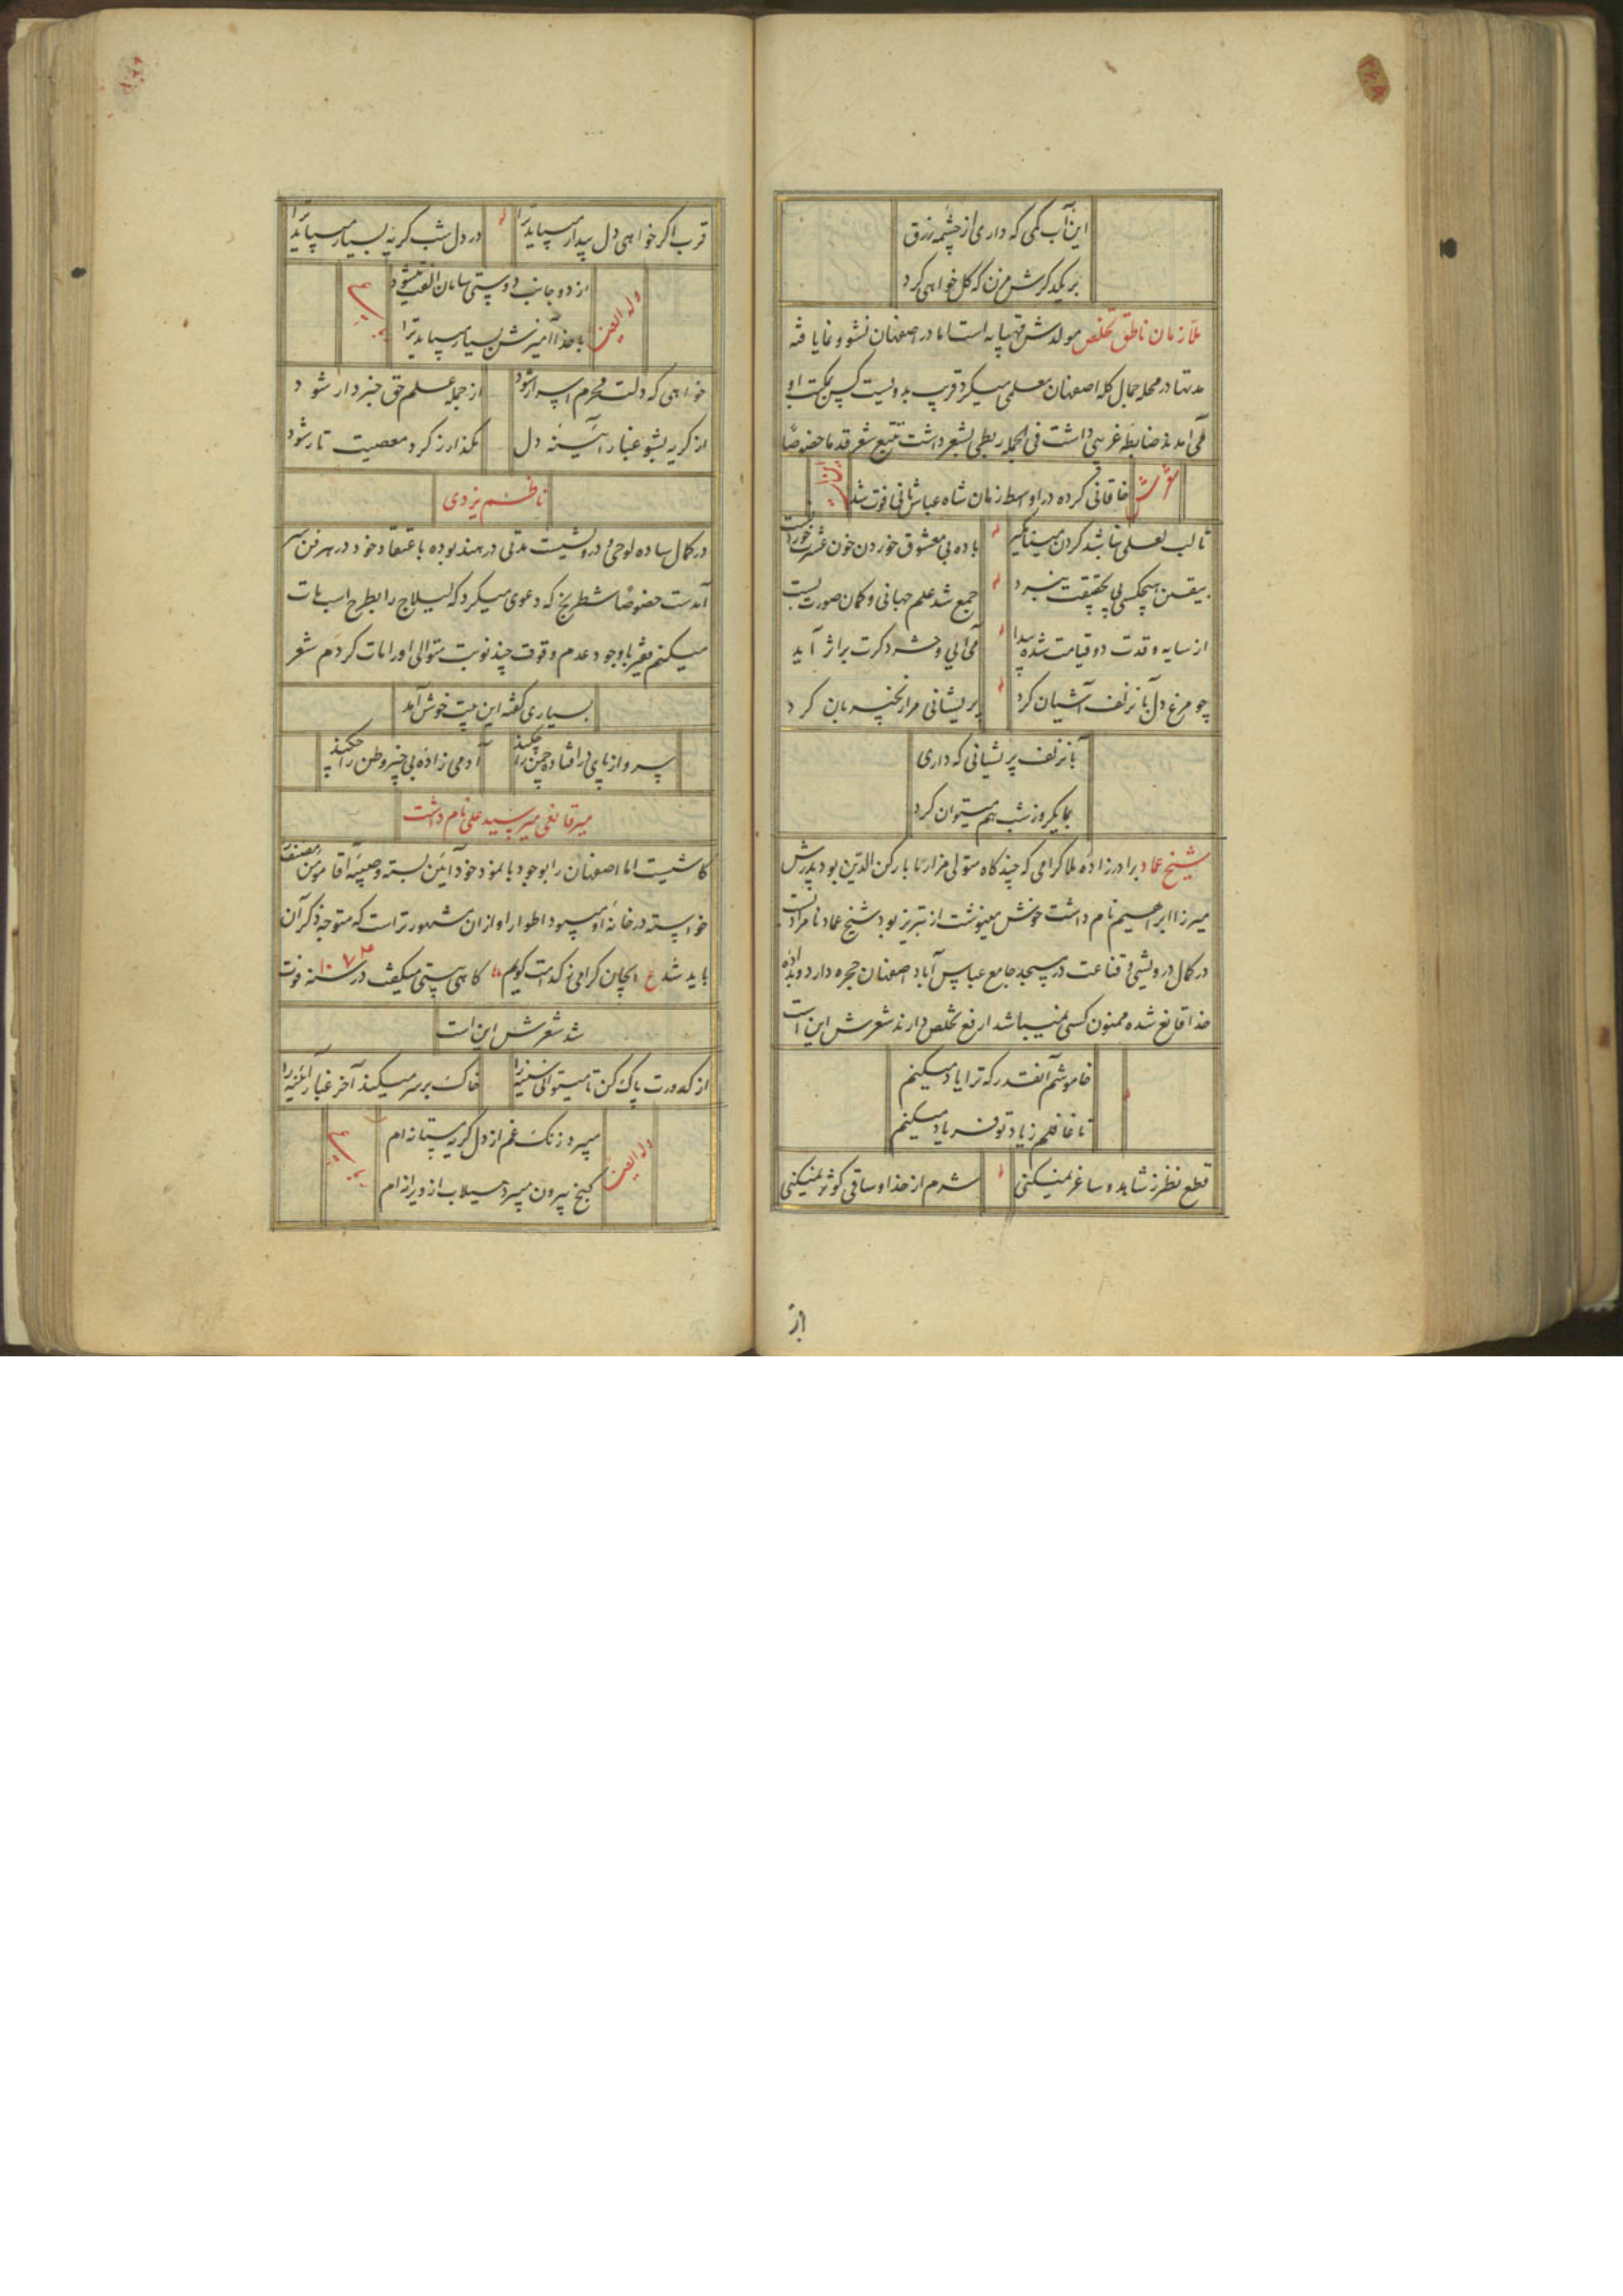 این آب کمی که داری از چشمه رزق
بر یکدگرش مزن که گل خواهی کرد
ملا زمان ناطق تخلص مولدش قهپایه است اما در اصفهان نشو و نما یافته
مدتها در محله جمال کله اصفهان معلمی میکرد قریب بدویست کس بمکتب او
می آمدند ضابطه غریبی داشت فی الجمله ربطی بشعر داشت تتبع شعر قدما خصوصا
خاقانی کرده در اواسط زمان شاه عباس ثانی فوت شد
تا لب لعلی نباشد گردن مینا مگیر باده بی معشوق خوردن خون عشرت خوردنست
بیقین هیچکسی پی بحقیقت نبرد جمع شد علم جهانی و کمان صورت بست
از سایه و قدت دو قیامت شده پیدا می آیی و حشر دگرت بر اثر آید
چو مرغ دل بآن زلف آشیان کرد پریشانی مرا زنجیربان کرد
بآن زلف پریشانی که داری
بما یکروز شب هم میتوان کرد
شیخ عماد برادرزاده ملا گرامی که چند گاه متولی مزار بابا رکن الدین بود پدرش
میرزا ابراهیم نام داشت خوش مینوشت از تبریز بود شیخ عماد نامرادست
در کمال درویشی و قناعت در مسجد جامع عباس آباد اصفهان حجره دارد و بداده
خدا قانع شده ممنون کسی نمیباشد ارفع تخلص دارند شعرش این است
خاموشم آنقدر که ترا یاد میکنم
تا غافلم ز یاد تو فریاد میکنم
قطع نظر ز شاهد و ساغر نمیکنی شرم از خدا و ساقی کوثر نمیکنی
از
قرب اگر خواهی دل بیدار میباید ترا در دل شب گریه بسیار میباید ترا
از دو جانب دوستی سامان الفت میشود
وله ایضا
با خدا آمیزش بسیار میباید ترا
خواهی که دلت محرم اسرار شود از جمله علم حق خبردار شود
از گریه بشو غبار آئینه دل مگذار ز گرد معصیت تار شود
ناظم یزدی
در کمال ساده لوحی و درویشیست مدتی در هند بوده باعتقاد خود در هر فن سر
آمدست خصوصا شطرنج که دعوی میکرد که لیلاج را بطرح اسب مات
میکنم فقیر با وجود عدم وقوف چند نوبت متوالی او را مات کردم شعر
بسیاری گفته این بیت خوش آمد
پرواز پای در افتاده چمن را چکند آدمی زاده بی خبر وطن را چکند
میر قانعی میر سید علی نام داشت
کاشیست اما اصفهان را بوجود بانمود خود آیین بسته و صبیه آقا مومن مصنف
خواسته در خانه او میبود اطوار او از آن مشهورتر است که متوجه ذکر آن
باید شد ع ایجان گرامی ز کدامت گویم گاهی بیتی میگفت در سنه ۱۰۷۴ فوت
شد شعرش این است
از کدورت پاک کن تا میتوانی سینه را خاک بر سر میکند آخر غبار آئینه را
میبرد زنگ غم از دل گریه مستانه ام
وله ایضا
گنج بیرون میبرد سیلاب از ویرانه ام